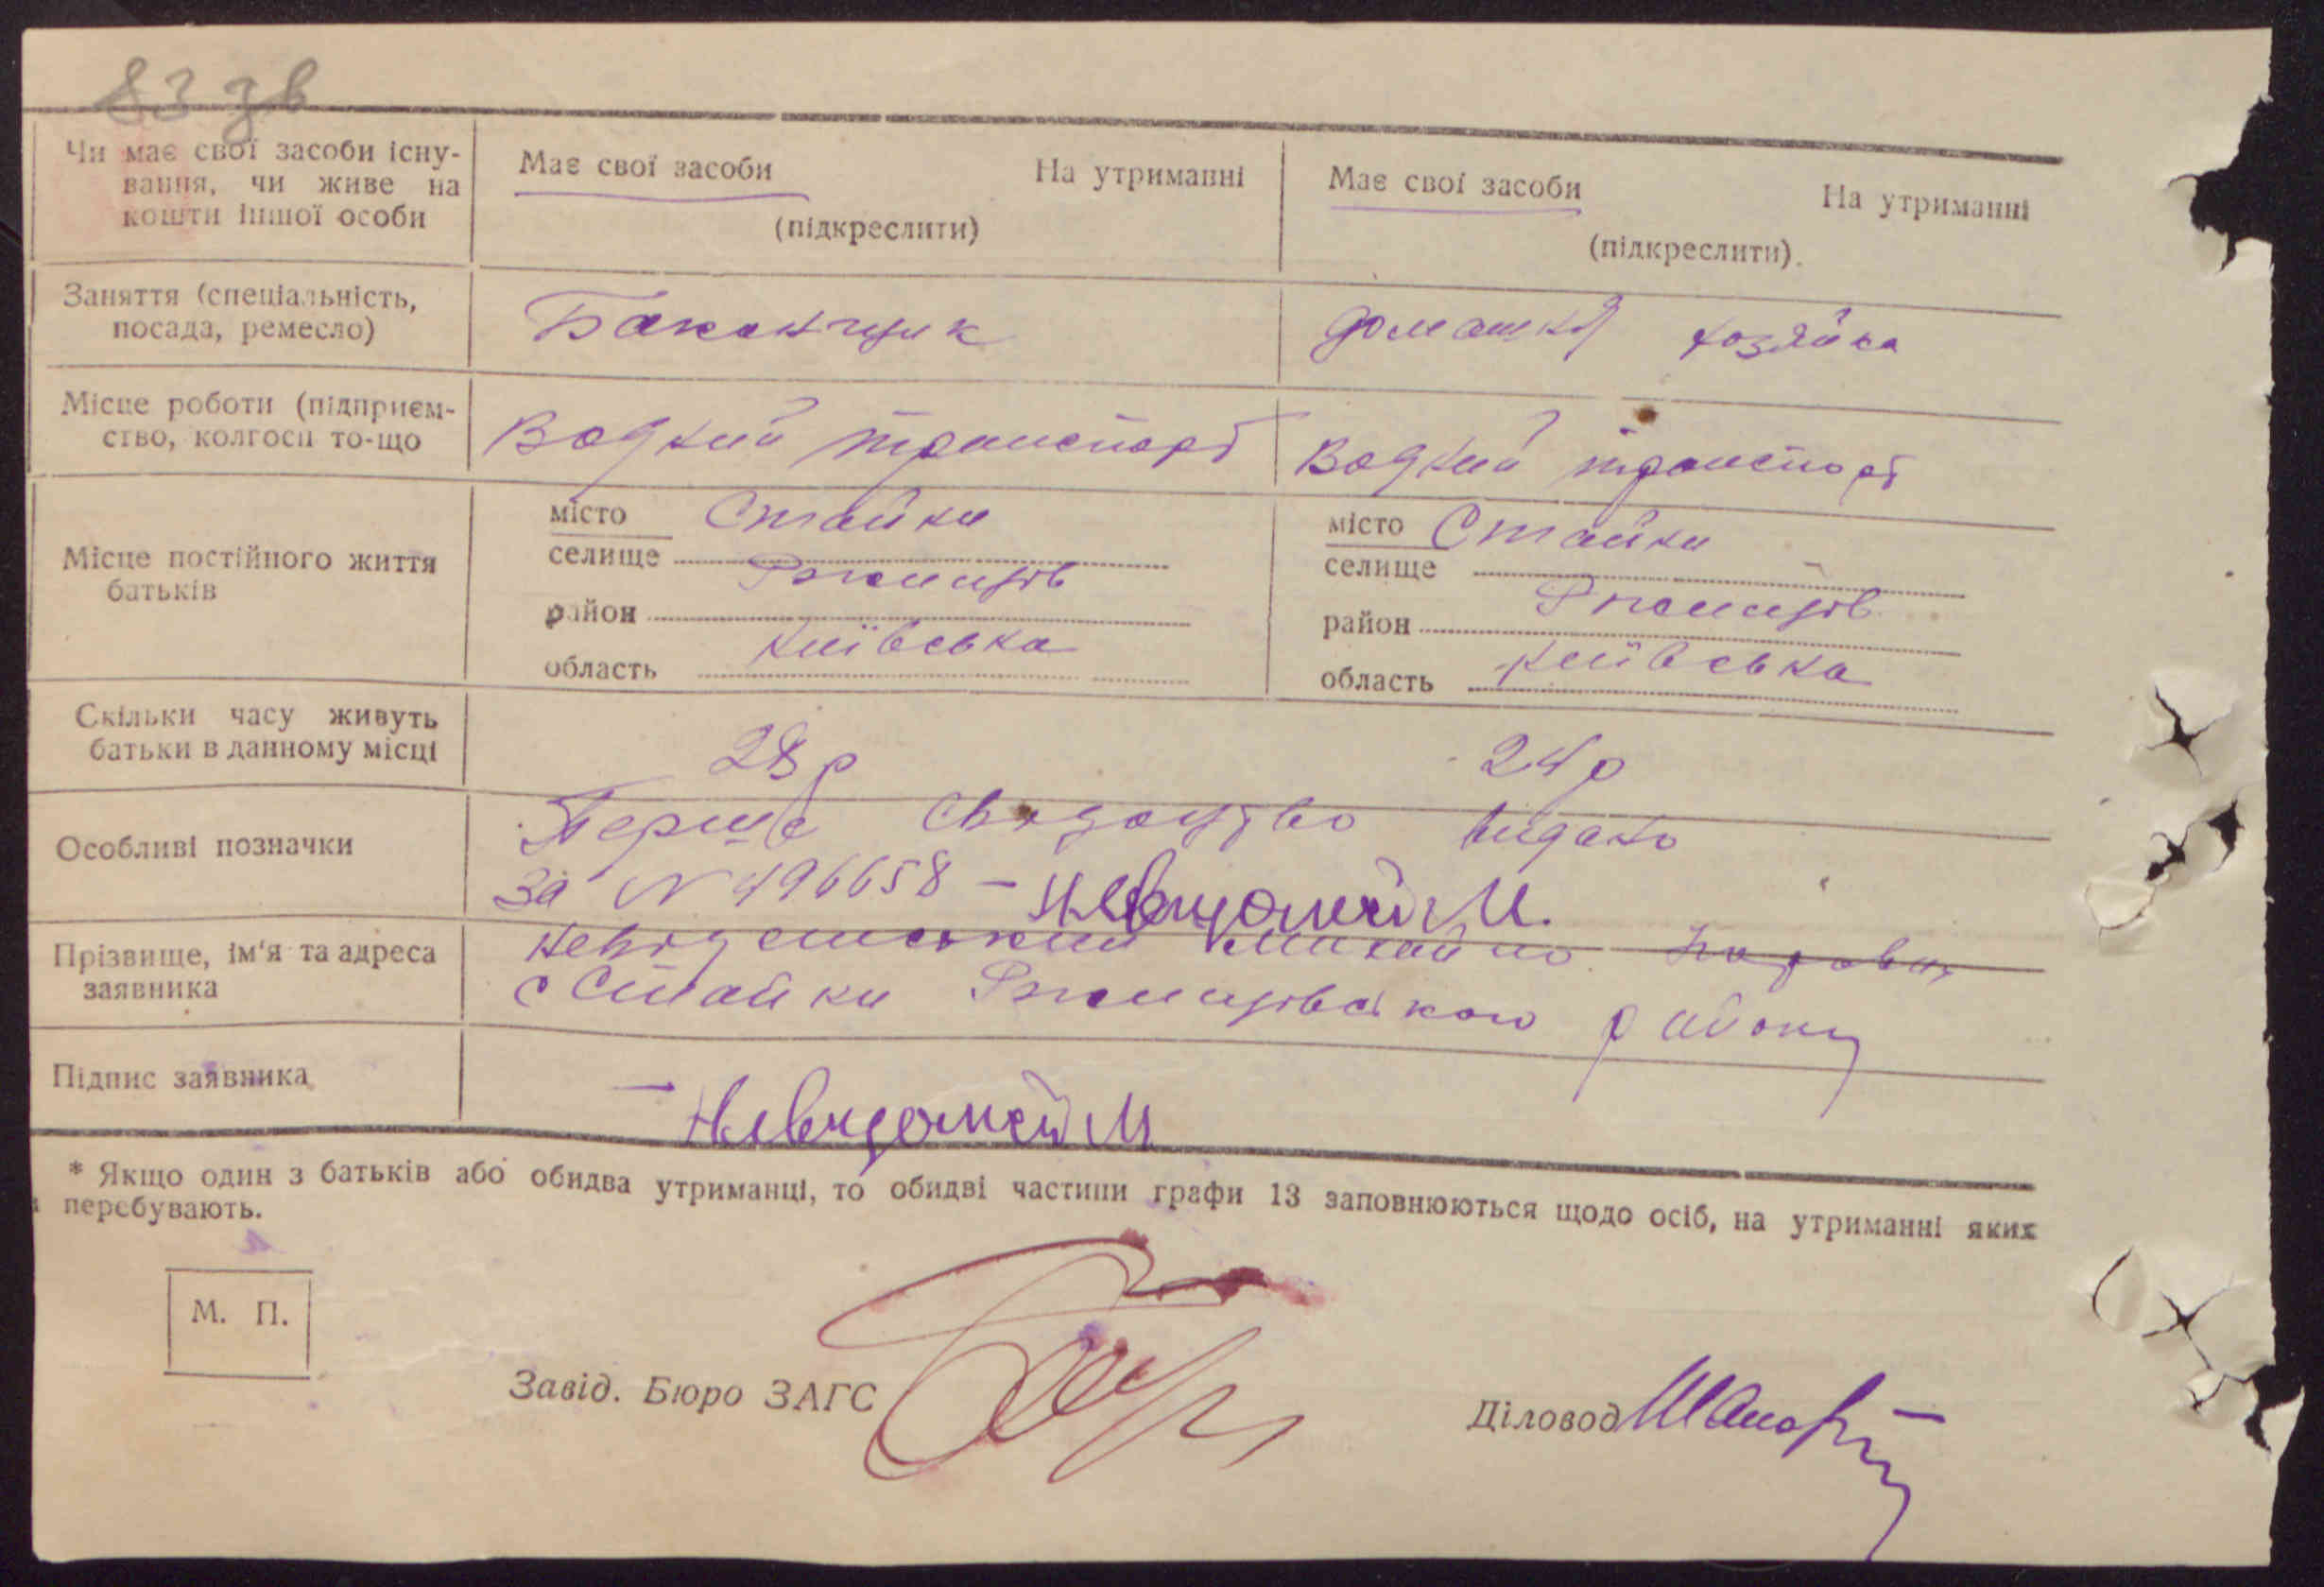 83 зв
Чи має свої засоби існу-
вання, чи живе на
кошти іншої особи
Має свої засоби На утриманні
(підкреслити)
Має свої засоби На утриманні
(підкреслити).
Заняття (спеціальність,
посада, ремесло)
Баканчщик
домашня хозяйка
Місце роботи (підприєм-
ство, колгосп то-що
Водний транспорт
Водний транспорт
Місце постійного життя
батьків
місто Стайки
селище
район Ржищів
область Київська
місто Стайки
селище
район Ржищів
область Київська
Скільки часу живуть
батьки в данному місці
28 р
24 р
Особливі позначки
Перше свідоцтво видано
за N 496658 – М.
Прізвище, ім'я та адреса
заявника
Михайло
с Стайки Ржищівського району
Підпис заявника
М
* Якщо один з батьків або обидва утриманці, то обидві частини графи 13 заповнюються щодо осіб, на утриманні яких
перебувають.
М. П.
Завід. Бюро ЗАГС
Діловод